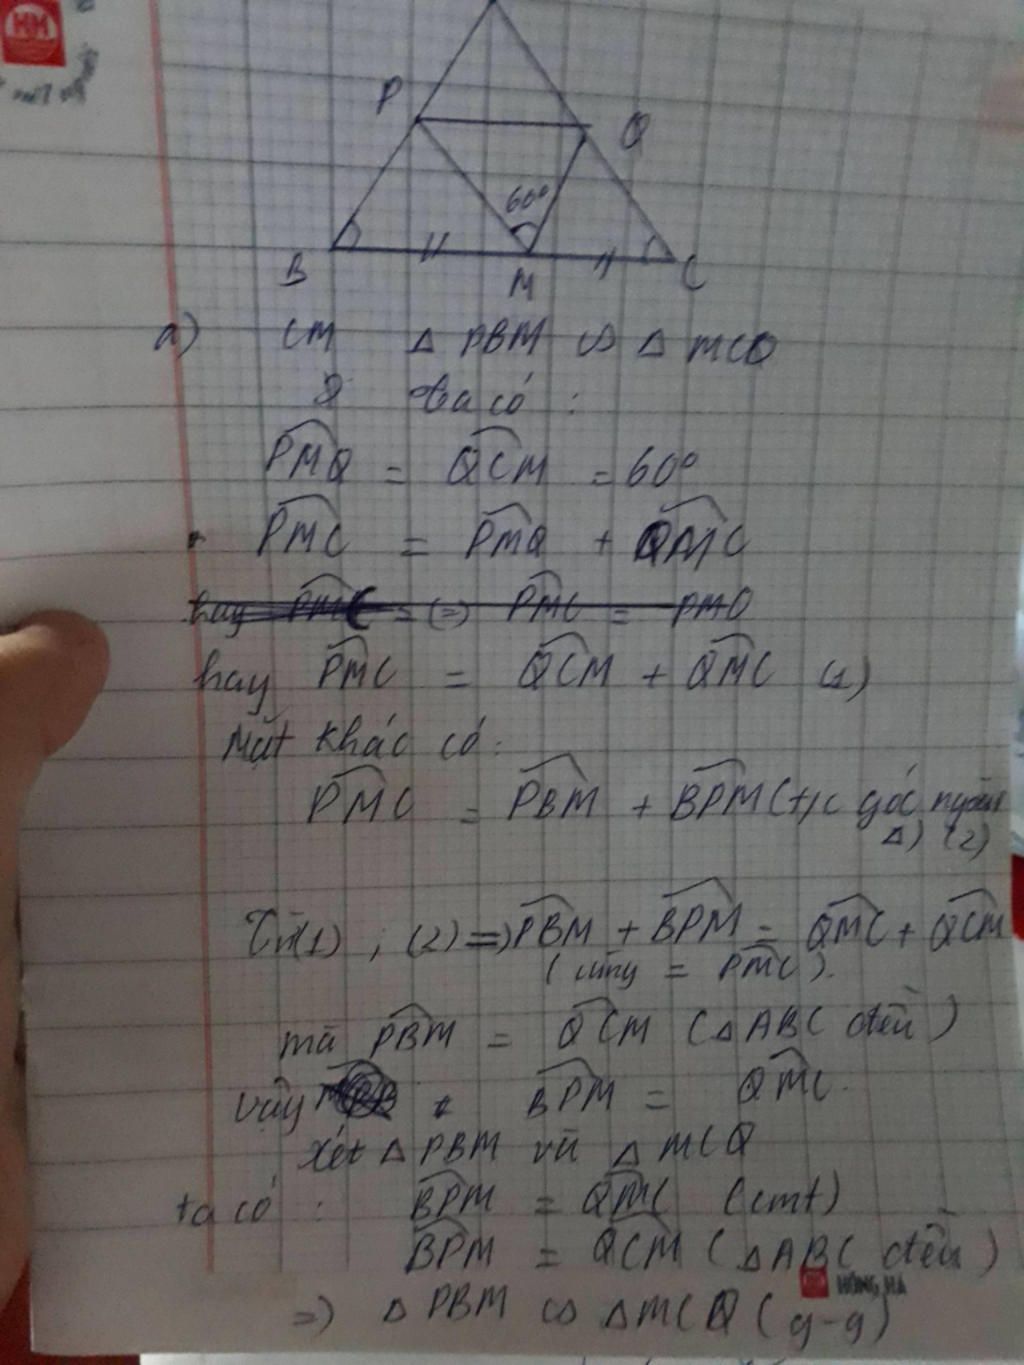 HM
P
Q
60°
B
M
C
a) CM Δ PBM ∽ Δ MCQ
ta có :
PMQ = QCM = 60°
PMC = PMQ + QMC
hay PMC = (=) PMC = PMQ
hay PMC = QCM + QMC (1)
Mặt khác có:
PMC = PBM + BPM (t/c góc ngoài
Δ) (2)
Từ (1) ; (2) =) PBM + BPM = QMC + QCM
( cùng = PMC).
mà PBM = QCM (ΔABC đều )
vậy BPM = QMC.
Xét Δ PBM và Δ MCQ
ta có : BPM = QMC (cmt)
BPM = QCM ( ΔABC đều )
HỒNG HÀ
=) Δ PBM ∽ ΔMCQ ( g-g)